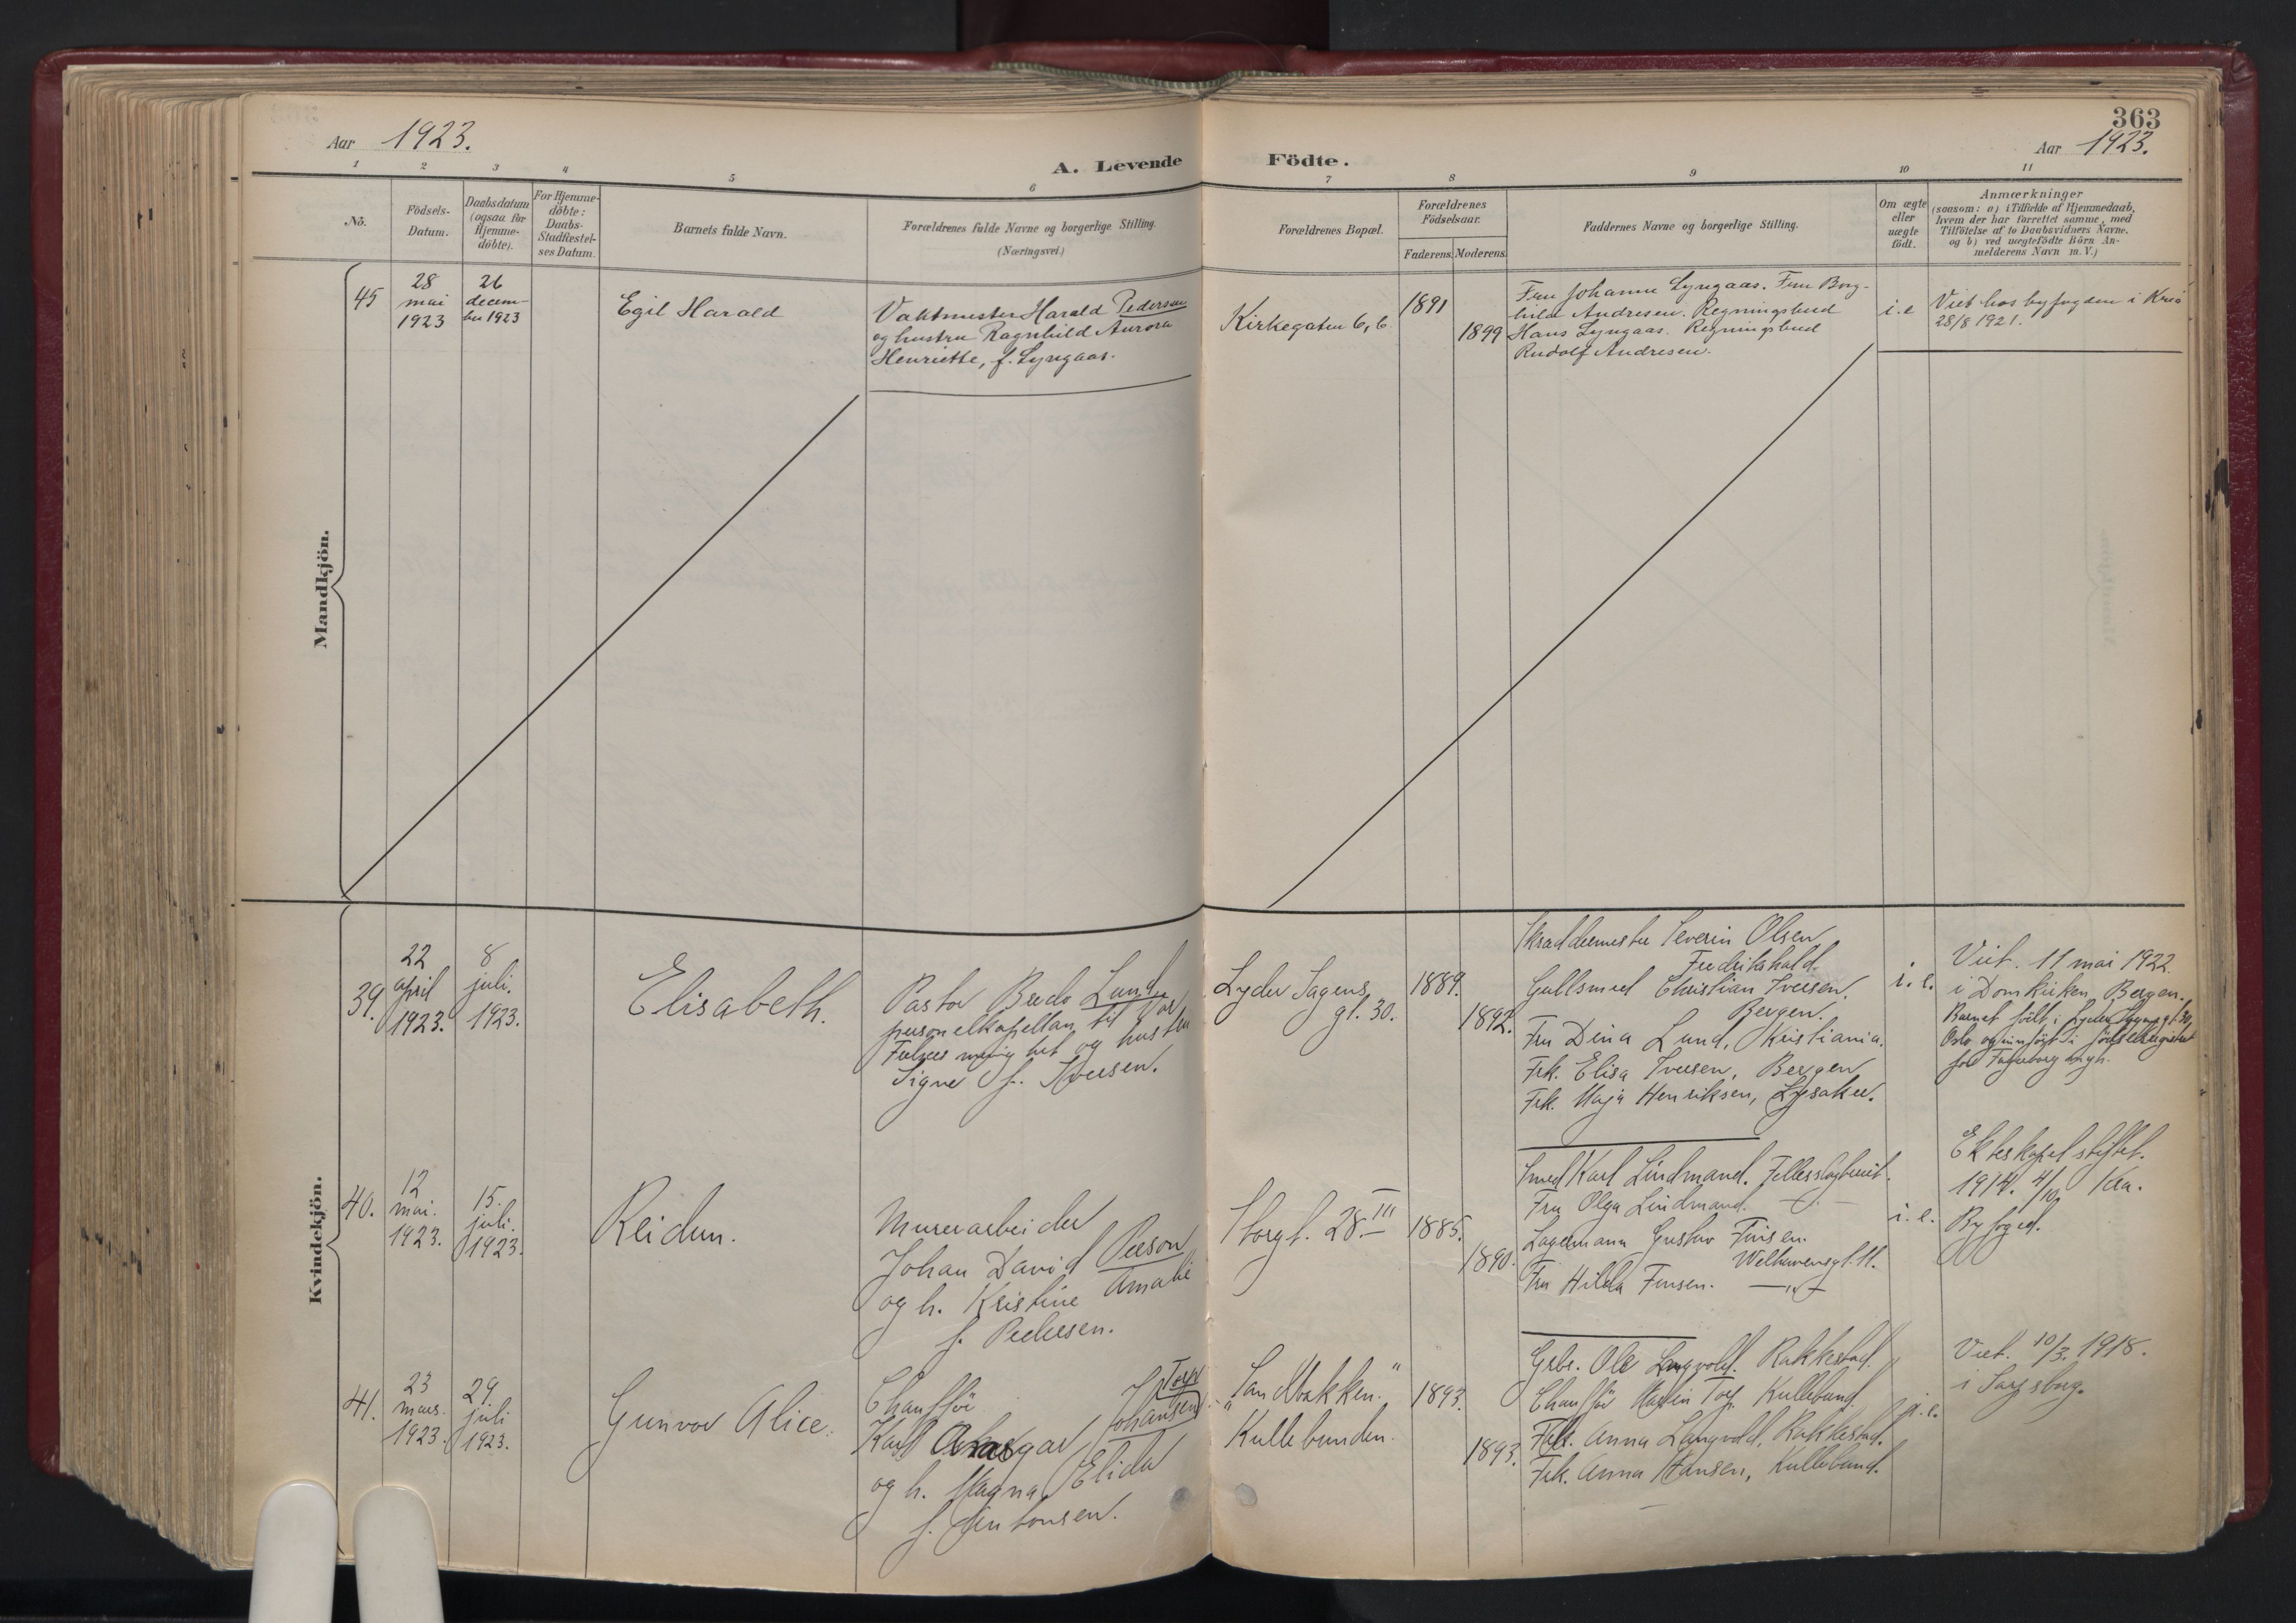 363
Aar 1923.
Aar 1923.
A. Levende Födte.
1 2 3 4 5 6 7 8 9 10 11
No.
Födsels-
Datum.
Daabsdatum
(ogsaa för
Hjemme-
döbte).
For Hjemme-
döbte:
Daabs-
Stadfæstel-
ses Datum.
Barnets fulde Navn.
Forældrenes fulde Navne og borgerlige Stilling.
(Næringsvei.)
Forældrenes Bopæl.
Forældrenes
Födselsaar.
Faderens. Moderens.
Faddernes Navne og borgerlige Stilling.
Om ægte
eller
uægte
födt.
Anmærkninger
(saasom: a) i Tilfælde af Hjemmedaab,
hvem der har forrettet samme, med
Tilföielse af to Daabsvidners Navne,
og b) ved uægtefödte Börn An-
melderens Navn m. V.)
Mandkjön.
45
28
mai
1923
26
decem-
ber 1923
Egil Harald
Vaktmester Harald Pedersen
og hustru Ragnhild Aurora
Henriette, f. Lyngaas.
Kirkegaten 6, b
1891
1899
Fru Johanne Lyngaas. Fru Borg-
hild Andresen. Regningsbud
Hans Lyngaas. Regningsbud
Rudolf Andresen.
i.e
Viet hos byfogden i Kria
28/8 1921.
Kvindekjön.
39.
22
april
1923.
8
juli.
1923.
Elisabeth.
Pastor Bredo Lund,
personelkapellan til Vor
Frelsers menighet og hustru
Signe f. Iversen.
Lyder Sagens
gt. 30.
1889.
1892.
Skræddermester Severin Olsen,
Fredrikshald.
Gullsmed Christian Iversen,
Bergen.
Fru Dina Lund, Kristiania.
Frk. Elisa Iversen, Bergen
Frk. Maja Henriksen, Lysaker.
i. e.
Viet. 11 mai 1922.
i Domkirken, Bergen.
Barnet født i Lyder Sagens gt 30,
Oslo og innført i fødselsregistret
for Fagerborg mgh.
40.
12
mai.
1923.
15.
juli.
1923.
Reidun.
Murerarbeider
Johan David Peeson
og h. Kristine Amalie
f. Pedersen.
Storgt. 28 III
1885.
1890.
Smed Karl Lindmand.
Fru Olga Lindmand.
Lagermann Gustav Finsen.
Welhavensgt. 11.
Fru Hilda Finsen. —"—
i. e.
Ekteskapet stiftet.
1914. 4/10. Kra.
Byfoged.
41.
23
mars.
1923.
29.
juli
1923.
Gunvor Alice.
Chauffør
Torp
Karl Johansen
og h. Magna Elida
f. Antonsen.
"Sandbakken."
Kullebunden.
1893.
1893.
Grbr. Ole Langvold. Rakkestad.
Chauffør Martin Torp. Kullebund.
Frk. Anna Langvold, Rakkestad.
Frk. Anna Hansen, Kullebund.
i. e.
Viet. 10/3. 1918.
i Sarpsborg.